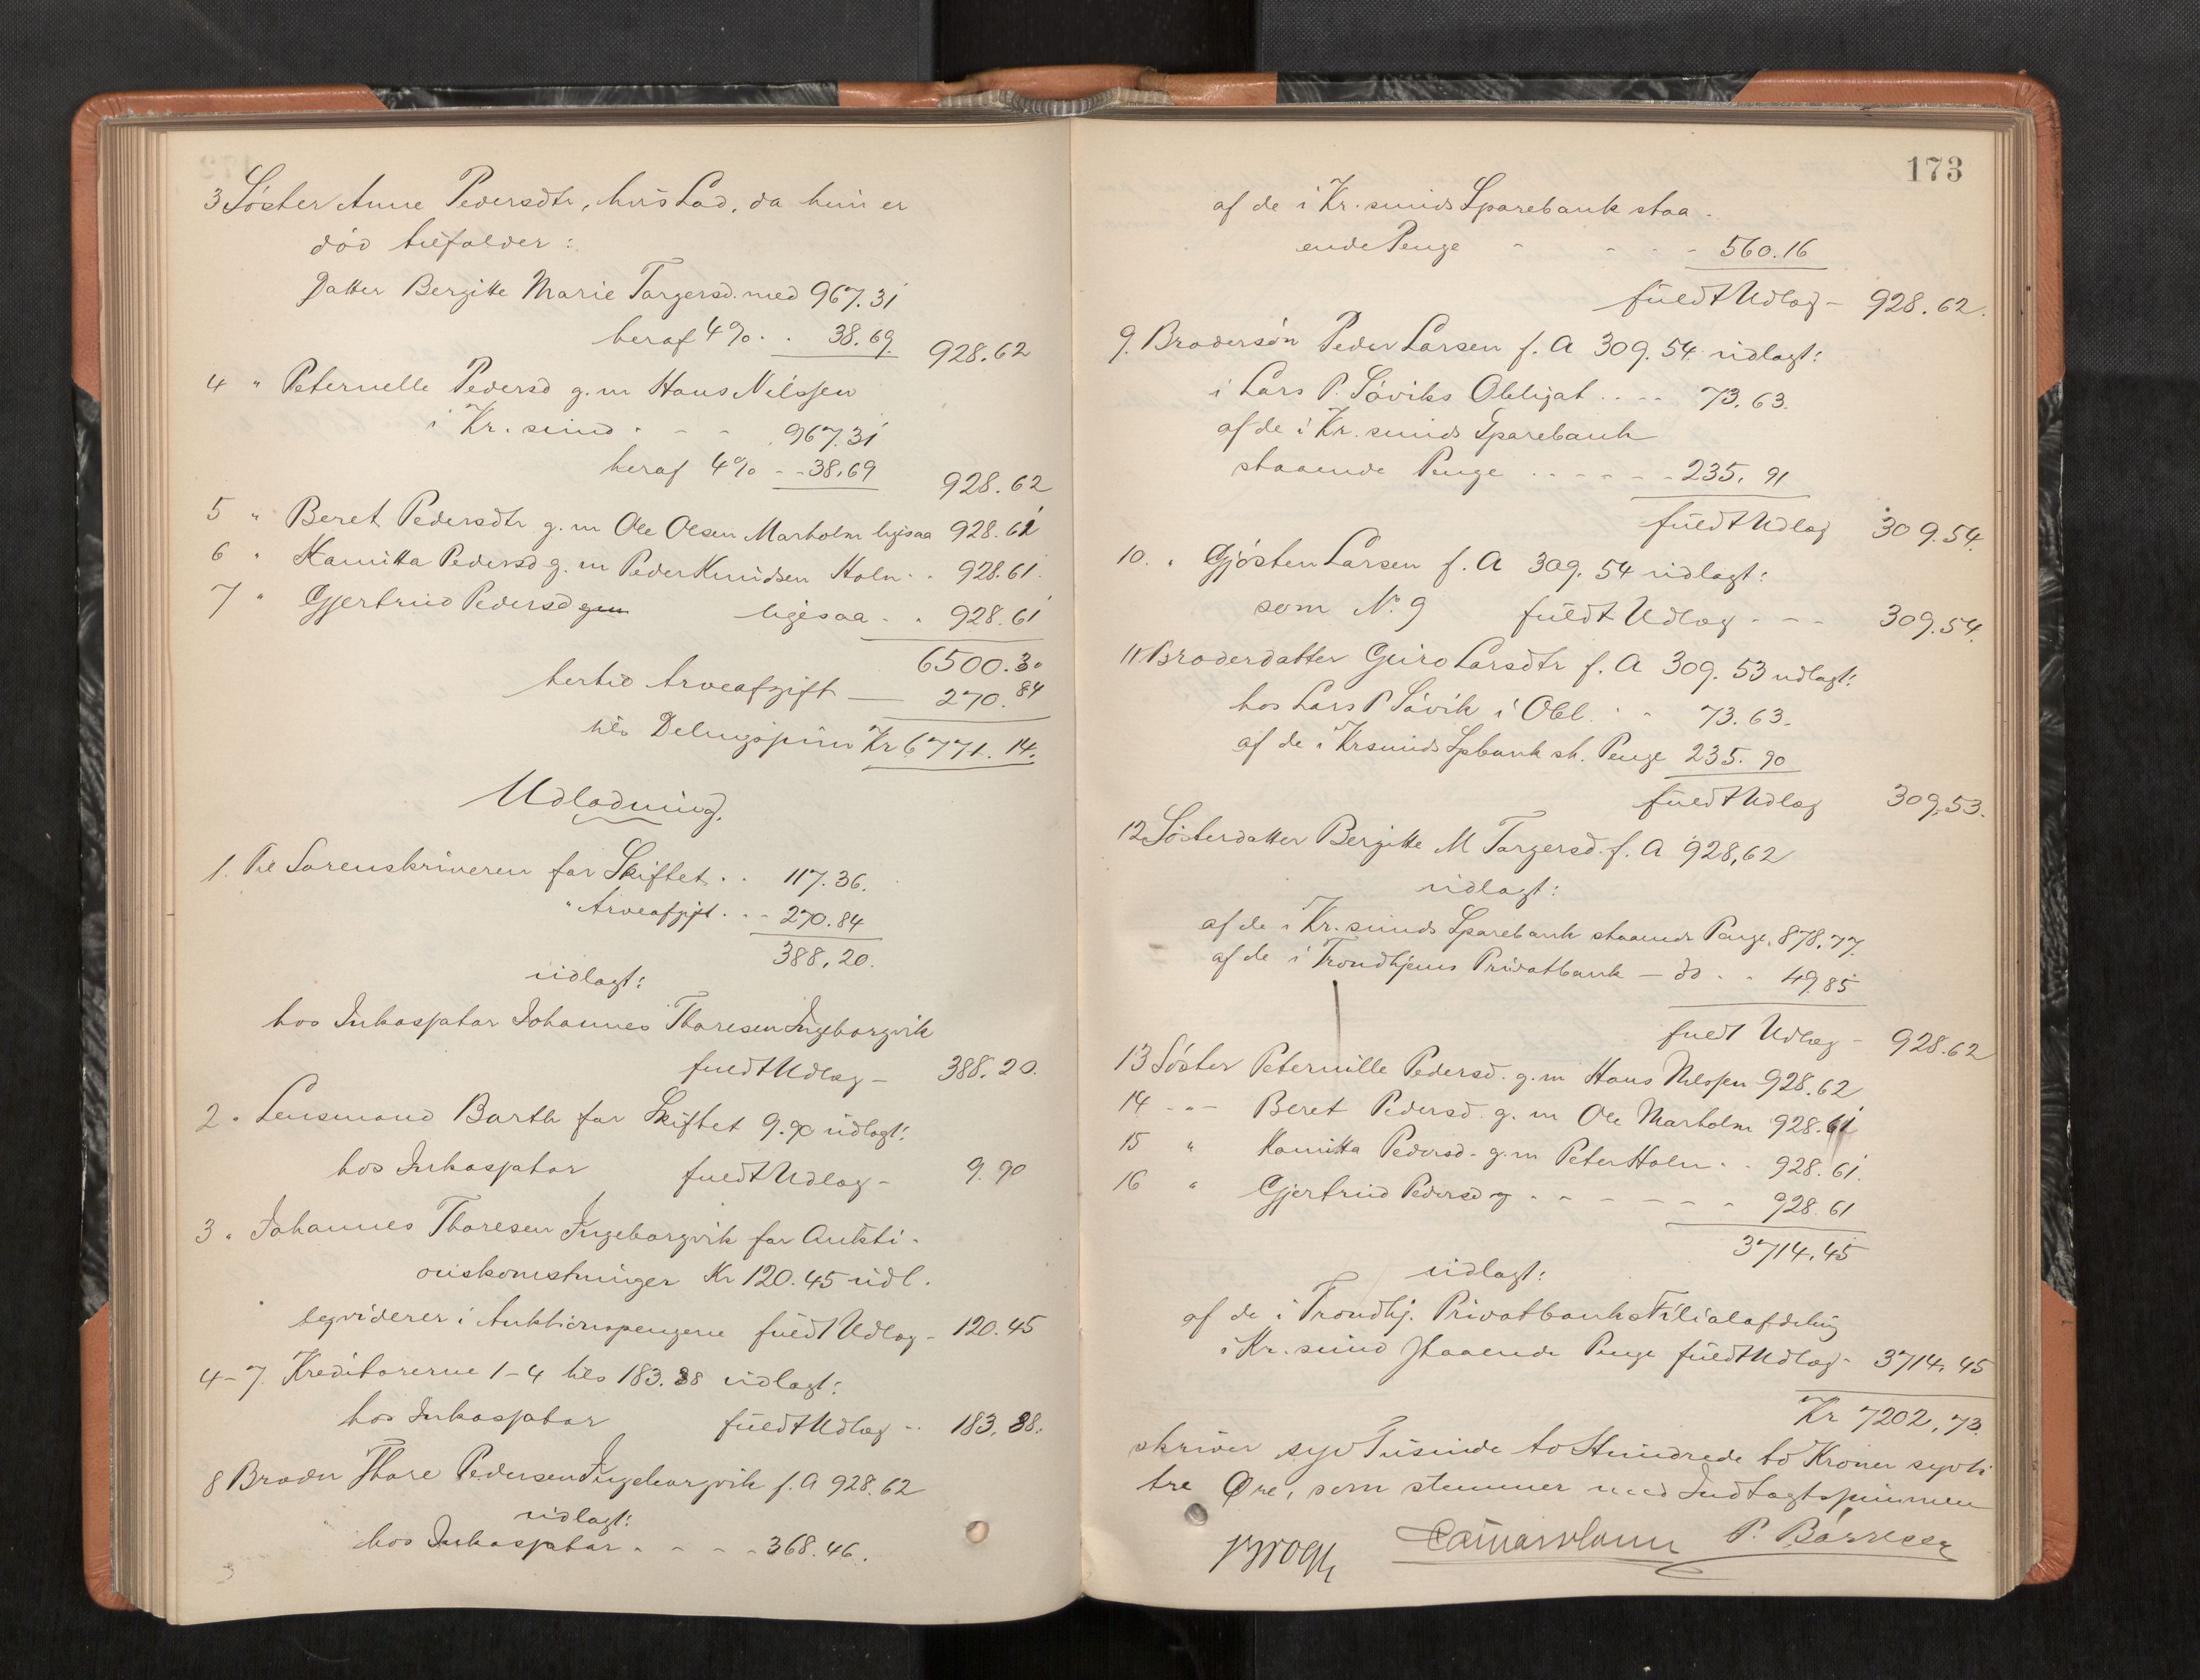 3 Söster Anne Pedersdtr, hvis Lod, da hun er
död tilfalder:
Datter Bergitte Marie Torgersd. med 967.31
heraf 4% . . 38.69. 928.62
4 " Peternelle Pedersd g. m Hans Nilssen
i Kr. sund - - - 967.31
heraf 4% - - 38.69 928.62
5 " Beret Pedersdtr g. m Ole Olsen Marholm ligesaa 928.61
6 " Hanikka Pedersd g. m Peder Knudsen Holm . . 928.61.
7 " Gjertrud Pedersd gm ligesaa . . 928.61
6500.30
hertil Arveafgift — 270.84
tils Delingssum Kr 6771.14.
Udlodning.
1. Til Sorenskriveren for Skiftet . . 117.36.
" Arveafgift . . - 270.84
388,20.
udlagt:
hos Inkassator Johannes Thoresen Ingeborgvik
fuldt Udlæg — 388.20.
2 . Lensmand Barth for Skiftet 9.90 udlagt:
hos Inkassator fuldt Udlæg - 9.90
3 . Johannes Thoresen Ingeborgvik for Aukti-
onsomkostninger Kr 120.45 udl.
liqviderer i Auktionspengene fuldt Udlæg - 120.45
4-7. Kreditorerne 1-4 tils 183.88 udlagt:
hos Inkassator fuldt Udlæg - . 183.88.
8 Broder Thore Pedersen Ingeborgvik f. A 928.62
udlagt:
hos Inkassator . - - - 368.46.
173
af de i Kr. sunds Sparebank staa-
ende Penge - - - - 560.16
fuldt Udlæg - 928.62.
9. Brodersön Peder Larsen f. A 309.54 udlagt:
i Lars P. Söviks Obligat . . - - 73.63.
af de i Kr. sunds Sparebank
staaende Penge . . - - - - 235.91
fuldt Udlæg 309.54.
10. " Gjösten Larsen f. A 309.54 udlagt:
som No. 9 fuldt Udlæg - - - 309.54.
11 Broderdatter Guro Larsdtr f. A 309.53 udlagt:
hos Lars P Sövik i Obl. . - 73.63.
af de i Krsunds Spbank st. Penge 235.90
fuldt Udlæg 309.53.
12 Sösterdatter Bergitte M Torgersd. f. A 928,62
udlagt:
af de i Kr. sunds Sparebank staaende Penge. 878.77.
af de i Trondhjems Privatbank — do . . 49.85
fuldt Udlæg - 928.62
13 Söster Peternille Pedersd. g. m Hans Nilssen 928.62
14 - " - Beret Pedersd. g. m Ole Marholm 928.61
15 " Hanikka Pedersd. g. m Peter Holm . . 928.61.
16 " Gjertrud Pedersd g - - - - - - - 928.61
3714.45
udlagt:
af de i Trondhj. Privatbanks Filialafdeling
i Kr. sund staaende Penge fuldt Udlæg - 3714.45
Kr 7202,73.
skriver syv Tusinde to Hundrede to Kroner sytti
tre Øre, som stemmer med Indtægtssummen
Brogh P. Börresen